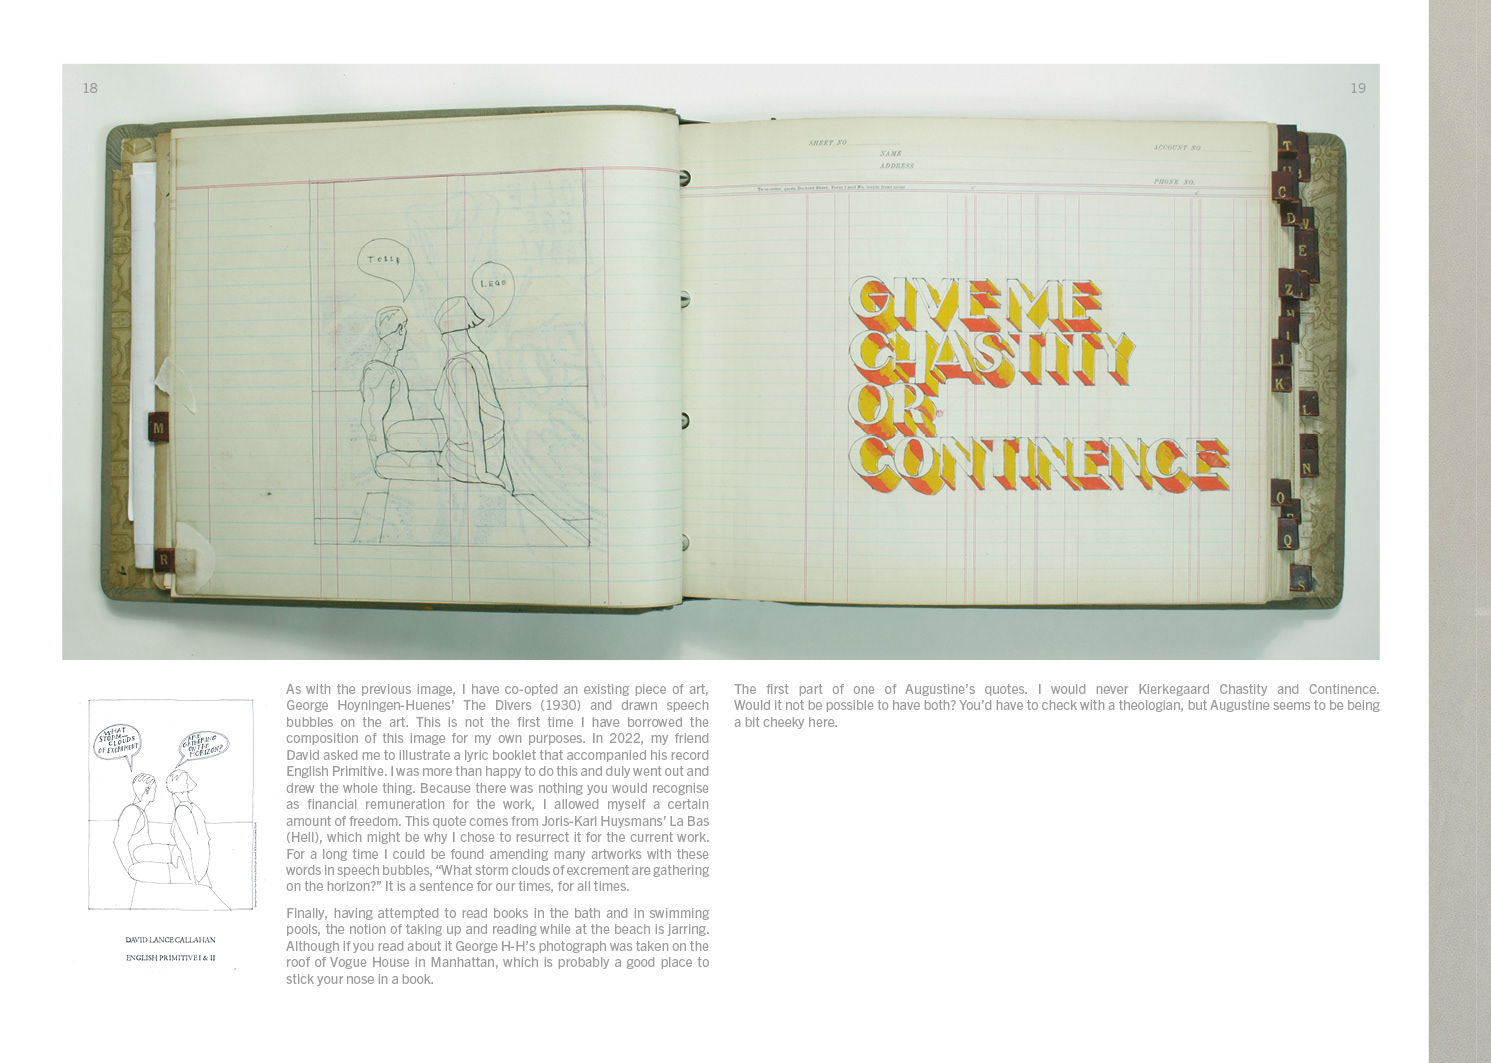 18
19
TOLLE
LEGE
SHEET NO
NAME
ADDRESS
ACCOUNT NO
PHONE NO.
GIVE ME
CHASTITY
OR
CONTINENCE
M
R
T
C
D
W
E
Z
H
I
J
K
L
N
O
P
Q
S
WHAT
STORM-
CLOUDS
OF EXCREMENT
ARE
GATHERING
ON THE
HORIZON?
DAVID LANCE CALLAHAN
ENGLISH PRIMITIVE I & II
As with the previous image, I have co-opted an existing piece of art,
George Hoyningen-Huenes’ The Divers (1930) and drawn speech
bubbles on the art. This is not the first time I have borrowed the
composition of this image for my own purposes. In 2022, my friend
David asked me to illustrate a lyric booklet that accompanied his record
English Primitive. I was more than happy to do this and duly went out and
drew the whole thing. Because there was nothing you would recognise
as financial remuneration for the work, I allowed myself a certain
amount of freedom. This quote comes from Joris-Karl Huysmans’ La Bas
(Hell), which might be why I chose to resurrect it for the current work.
For a long time I could be found amending many artworks with these
words in speech bubbles, “What storm clouds of excrement are gathering
on the horizon?” It is a sentence for our times, for all times.
Finally, having attempted to read books in the bath and in swimming
pools, the notion of taking up and reading while at the beach is jarring.
Although if you read about it George H-H’s photograph was taken on the
roof of Vogue House in Manhattan, which is probably a good place to
stick your nose in a book.
The first part of one of Augustine’s quotes. I would never Kierkegaard Chastity and Continence.
Would it not be possible to have both? You’d have to check with a theologian, but Augustine seems to be being
a bit cheeky here.